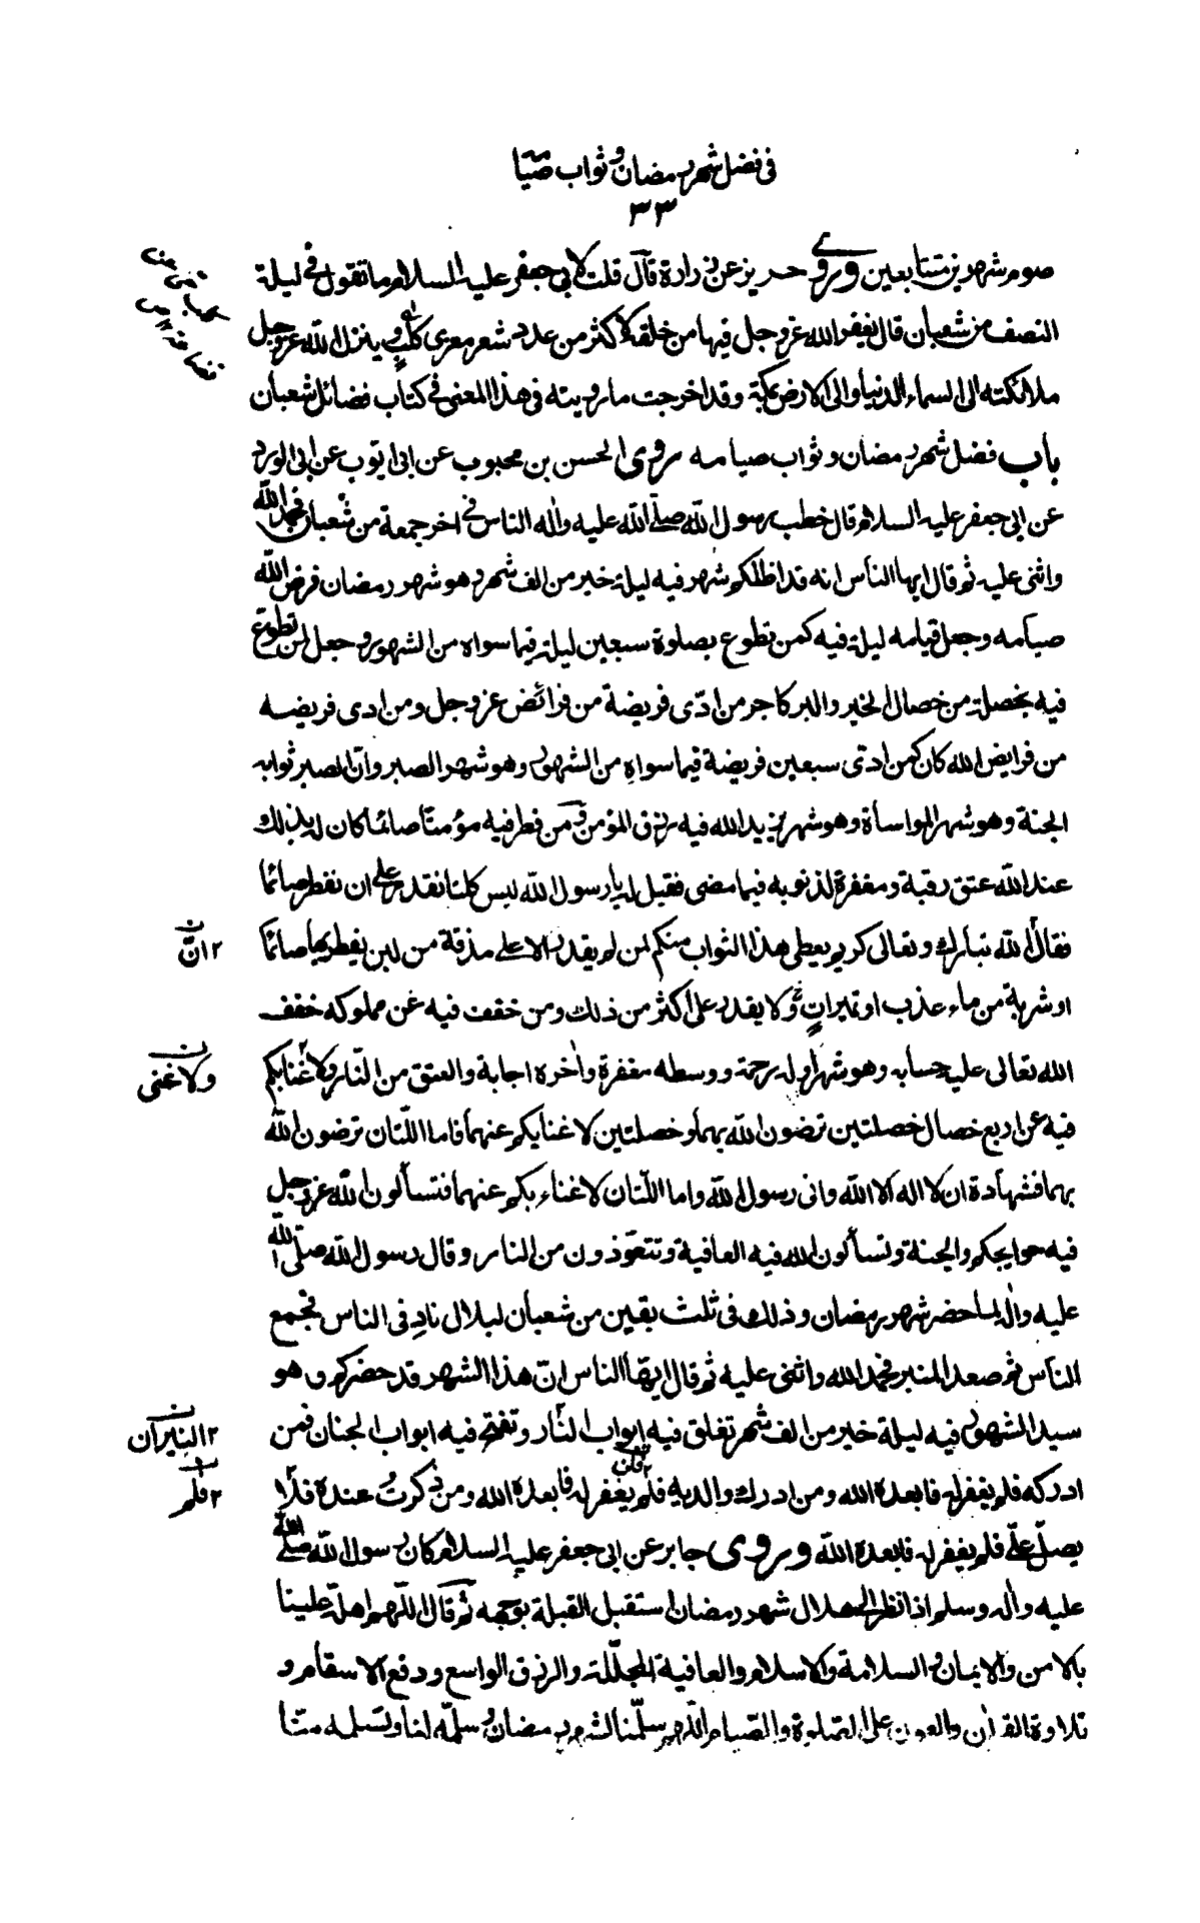 في فضل شهر رمضان وثواب صيامه
٣٣
صوم شهرين متتابعين وروى حريز عن زرارة قال قلت لابي جعفر عليه السلام ما تقول في ليلة
النصف من شعبان قال يغفر الله عز وجل فيها من خلقه لاكثر من عدد شعر معزى كلب وينزل الله عز وجل
ملائكته الى السماء الدنيا والى الارض بمكة وقد اخرجت ما رويته في هذا المعنى في كتاب فضائل شعبان
باب فضل شهر رمضان وثواب صيامه روى الحسن بن محبوب عن ابى ايوب عن ابى الورد
عن ابى جعفر عليه السلام قال خطب رسول الله صلى الله عليه واله الناس في اخر جمعة من شعبان فحمد الله
واثنى عليه ثم قال ايها الناس انه قد اظلكم شهر فيه ليلة خير من الف شهر وهو شهر رمضان فرض الله
صيامه وجعل قيامه ليلة فيه كمن تطوع بصلوة سبعين ليلة فيما سواه من الشهور وجعل لمن تطوع
فيه بخصلة من خصال الخير والبر كاجر من ادّى فريضة من فرائض عز وجل ومن ادى فريضه
من فرايض الله كان كمن ادى سبعين فريضة فيما سواه من الشهور وهو شهر الصبر وان الصبر ثوابه
الجنة وهو شهر المواساة وهو شهر يزيد الله فيه رزق المؤمن ومن فطر فيه مؤمنًا صائمًا كان له بذلك
عند الله عتق رقبة ومغفرة لذنوبه فيما مضى فقيل له يا رسول الله ليس كلنا نقدر على ان نفطر صائمًا
فقال الله تبارك وتعالى كريم يعطى هذا الثواب منكم لمن لم يقدر الا على مذقة من لبن يفطر بها صائمًا
٢ انّ
او شربة من ماء عذب او تميراتٍ ولا يقدر على اكثر من ذلك ومن خفف فيه عن مملوكه خفف
الله تعالى عليه حسابه وهو شهر اوله رحمة ووسطه مغفرة واخره اجابة والعتق من النار ولا غنا بكم
ولا غنى
فيه عن اربع خصال خصلتين ترضون الله بهما وخصلتين لا غنا بكم عنهما فاما اللتان ترضون الله
بهما فشهادة ان لا اله الا الله وانى رسول الله واما اللتان لا غناء بكم عنهما فتسألون الله عز وجل
فيه حوايجكم والجنة وتسألون الله فيه العافية وتتعوّذون من النار وقال رسول الله صلى الله
عليه واله لما حضر شهر رمضان وذلك في ثلث بقين من شعبان لبلال نادِ في الناس فجمع
الناس ثم صعد المنبر فحمد الله واثنى عليه ثم قال ايها الناس ان هذا الشهر قد حضركم وهو
سيد الشهور فيه ليلة خير من الف شهر تغلق فيه ابواب النار وتفتح فيه ابواب الجنان فمن
٢ النيران
ادركه فلم يغفر له فابعده الله ومن ادرك والديه فلم يغفر له فابعده الله ومن ذكرتُ عنده فلا
٢ فلم
يصلّ علىّ فلم يغفر له فابعده الله وروى جابر عن ابى جعفر عليه السلام كان رسول الله صلى الله
عليه واله وسلم اذا نظر الى هلال شهر رمضان استقبل القبلة بوجهه ثم قال اللهم اهله علينا
بالامن والايمان والسلامة والاسلام والعافية المجلّلة والرزق الواسع ودفع الاسقام و
تلاوة القرآن والعون على الصلوة والصيام اللهم سلّمنا لشهر رمضان وسلّمه لنا وتسلمه منّا